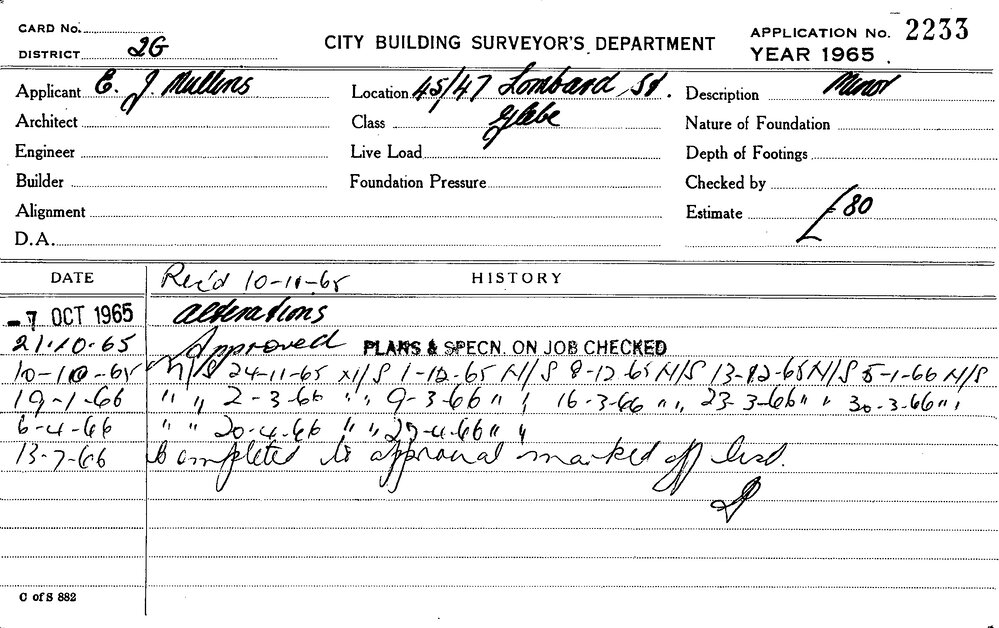 CARD No.
DISTRICT 2G
CITY BUILDING SURVEYOR'S DEPARTMENT
APPLICATION No. 2233
YEAR 1965
Applicant E. J. Mullens
Location 45/47 Lombard St.
Description Minor
Architect
Class Glebe
Nature of Foundation
Engineer
Live Load
Depth of Footings
Builder
Foundation Pressure
Checked by
Alignment
Estimate £80
D.A.
DATE
Rec'd 10-11-65
HISTORY
-7 OCT 1965 Alterations
21.10.65 Approved PLANS & SPECN. ON JOB CHECKED
10-10-65 N/S 24-11-65 N/S 1-12-65 N/S 8-12-65 N/S 13-12-65 N/S 5-1-66 N/S
19-1-66 " " 2-3-66 " " 9-3-66 " " 16-3-66 " " 23-3-66 " " 30-3-66 " "
6-4-66 " " 20-4-66 " " 27-4-66 " "
13-7-66 Completed to approval marked off
C of S 882